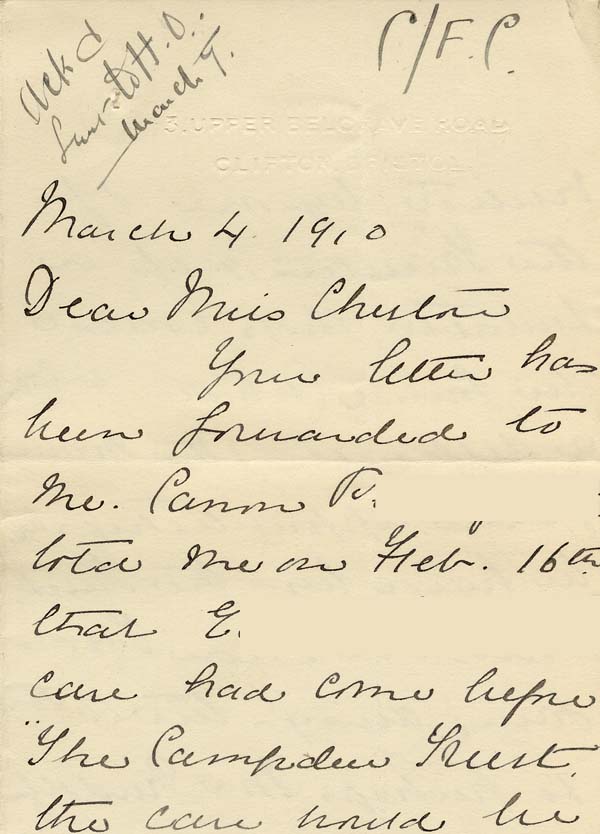 Ackd
Sent to H.O.
March 9.
C/F.C.
3, UPPER BELGRAVE ROAD,
CLIFTON, BRISTOL.
March 4. 1910
Dear Miss Cheston
Your letter has
been forwarded to
me. Canon P.
told me on Feb. 16th
that E.
case had come before
"The Campden Trust.
the case would be